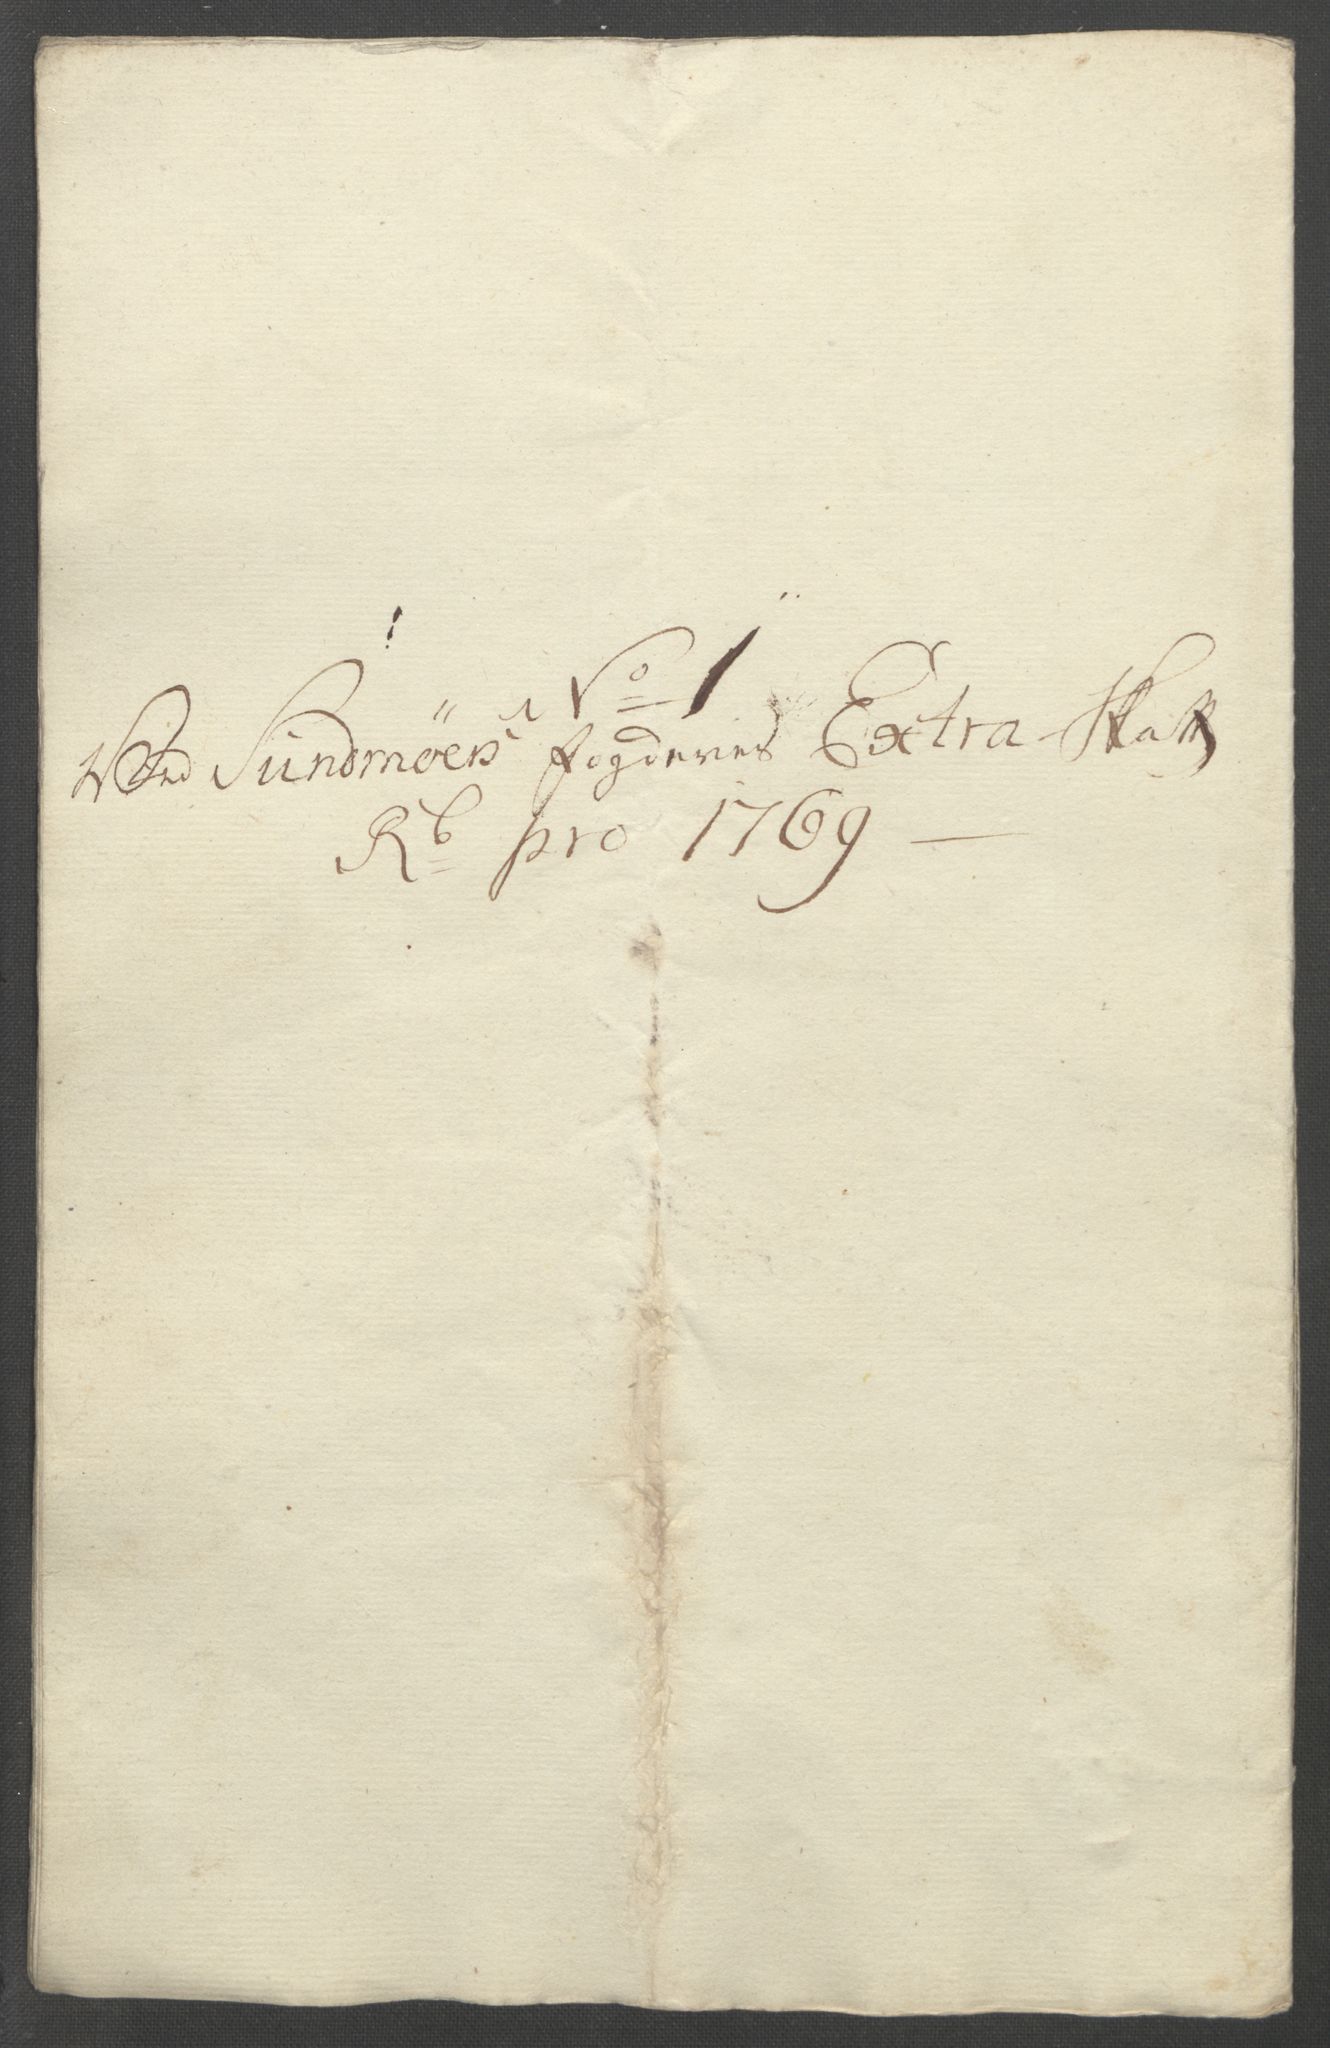 No 1
Ved Sundmöers fogderies Extra Skatt
Rb pro 1769